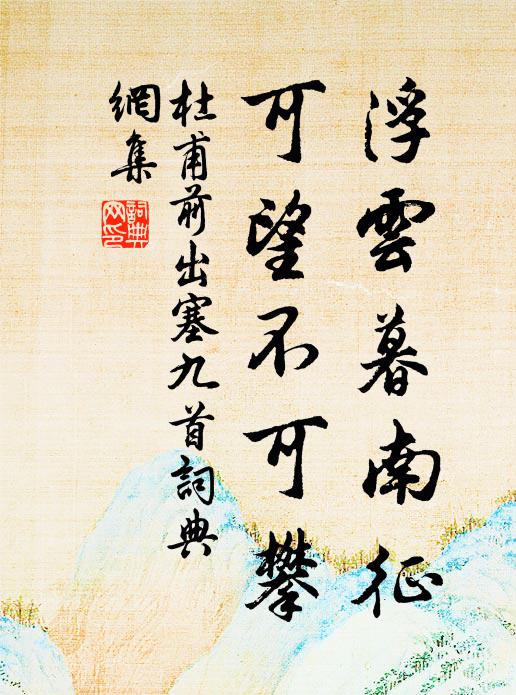 浮雲暮南征
可望不可攀
杜甫前出塞九首詞典
網集
詞典
网印